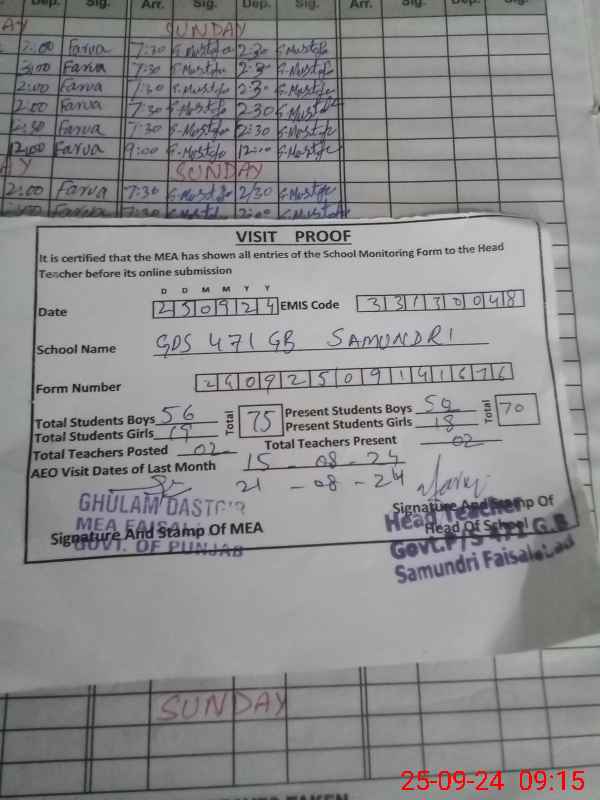 Dep. Sig. Arr. Sig. Dep. Sig. Arr. Sig. Dep. Sig.
AY SUNDAY
2:00 Farva 7:30 G.Mustafa 2:30 G.Mustafa
3:00 Farva 7:30 G.Mustafa 2:30 G.Mustafa
2:00 Farva 7:30 G.Mustafa 2:30 G.Mustafa
2:00 Farva 7:30 G.Mustafa 2:30 G.Mustafa
2:30 Farva 7:30 G.Mustafa 2:30 G.Mustafa
12:00 Farva 9:00 G.Mustafa 12:00 G.Mustafa
AY SUNDAY
2:00 Farva 7:30 G.Mustafa 2/30 G.Mustafa
Farva 7:30 G.Mustafa 2:00 G.Mustafa
VISIT PROOF
It is certified that the MEA has shown all entries of the School Monitoring Form to the Head
Teacher before its online submission
D D M M Y Y
Date 250924 EMIS Code 33130048
School Name GPS 471 GB SAMUNDRI
Form Number 24092509141676
Total Students Boys 56 Total 75 Present Students Boys 52 Total 70
Total Students Girls 19 Present Students Girls 18
Total Teachers Posted 02 Total Teachers Present 02
AEO Visit Dates of Last Month 15-08-24
21-08-24
GHULAM DASTGIR
MEA FAISAL
GOVT. OF PUNJAB
Signature And Stamp Of MEA
Signature And Stamp Of
Head Of School
Head Teacher
Govt.P/S 471 G.B
Samundri Faisalabad
SUNDAY
25-09-24 09:15